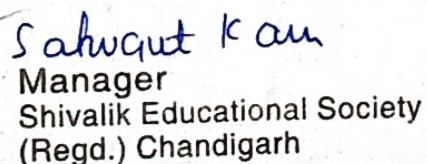 Manager
Shivalik Educational Society
(Regd.) Chandigarh